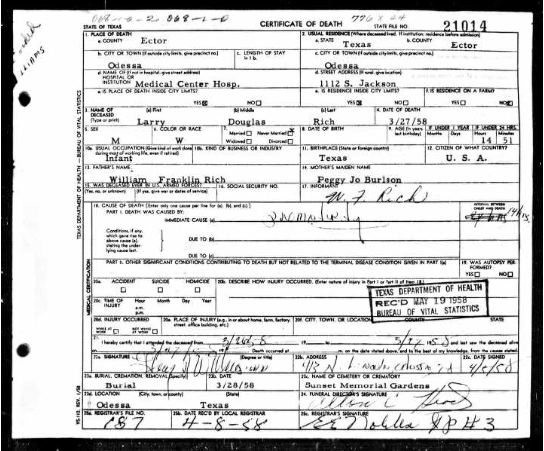 068-1-0
STATE OF TEXAS
CERTIFICATE OF DEATH
21014
1. PLACE OF DEATH
a. COUNTY Ector
2. USUAL RESIDENCE (Where deceased lived. If institution, residence before admission)
a. STATE Texas
b. COUNTY Ector
b. CITY OR TOWN (If outside city limits, give precinct no.) Odessa
c. LENGTH OF STAY in 1 b.
c. CITY OR TOWN (If outside city limits, give precinct no.) Odessa
d. NAME OF (If not in hospital, give street address) HOSPITAL OR INSTITUTION Medical Center Hosp.
d. STREET ADDRESS (If rural, give location) 1112 S. Jackson
e. IS PLACE OF DEATH INSIDE CITY LIMITS? YES NO
e. IS RESIDENCE INSIDE CITY LIMITS? YES NO
f. IS RESIDENCE ON A FARM? YES NO
3. NAME OF DECEASED (Type or print)
(a) First Larry
(b) Middle Douglas
(c) Last Rich
4. DATE OF DEATH 3/27/58
5. SEX M
6. COLOR OR RACE W
7. Married Never Married Widowed Divorced
8. DATE OF BIRTH
9. AGE (In years last birthday)
IF UNDER 1 YEAR Months Days
IF UNDER 24 HRS. Hours 14 Min. 51
10a. USUAL OCCUPATION (Give kind of work done during most of working life, even if retired) Infant
10b. KIND OF BUSINESS OR INDUSTRY
11. BIRTHPLACE (State or foreign country) Texas
12. CITIZEN OF WHAT COUNTRY? U. S. A.
13. FATHER'S NAME William Franklin Rich
14. MOTHER'S MAIDEN NAME Peggy Jo Burlson
15. WAS DECEASED EVER IN U.S. ARMED FORCES?
(Yes, no, or unknown) (If yes, give war or dates of service)
16. SOCIAL SECURITY NO.
17. INFORMANT W. F. Rich
18. CAUSE OF DEATH (Enter only one cause per line for (a), (b), and (c).)
PART I. DEATH WAS CAUSED BY:
IMMEDIATE CAUSE (a)
INTERVAL BETWEEN ONSET AND DEATH
Conditions, if any, which gave rise to above cause (a) stating the underlying cause last.
DUE TO (b)
DUE TO (c)
PART II. OTHER SIGNIFICANT CONDITIONS CONTRIBUTING TO DEATH BUT NOT RELATED TO THE TERMINAL DISEASE CONDITION GIVEN IN PART I(a)
19. WAS AUTOPSY PERFORMED? YES NO
20a. ACCIDENT SUICIDE HOMICIDE
20b. DESCRIBE HOW INJURY OCCURRED. (Enter nature of injury in Part I or Part II of item 18.)
20c. TIME OF INJURY Hour Month Day Year a.m. p.m.
TEXAS DEPARTMENT OF HEALTH
REC'D MAY 19 1958
BUREAU OF VITAL STATISTICS
20d. INJURY OCCURRED WHILE AT WORK NOT WHILE AT WORK
20e. PLACE OF INJURY (e.g., in or about home, farm, factory, street, office building, etc.)
20f. CITY, TOWN, OR LOCATION COUNTY STATE
21. I hereby certify that I attended the deceased from
and last saw the deceased alive
Death occurred at m. on the date stated above, and to the best of my knowledge, from the causes stated.
22a. SIGNATURE (Degree or title)
22b. ADDRESS
22c. DATE SIGNED
23a. BURIAL, CREMATION, REMOVAL (Specify) Burial
23b. DATE 3/28/58
23c. NAME OF CEMETERY OR CREMATORY Sunset Memorial Gardens
23d. LOCATION (City, town, or county) (State) Odessa Texas
24. FUNERAL DIRECTOR'S SIGNATURE
25a. REGISTRAR'S FILE NO. 187
25b. DATE REC'D BY LOCAL REGISTRAR 4-8-58
25c. REGISTRAR'S SIGNATURE
TEXAS DEPARTMENT OF HEALTH — BUREAU OF VITAL STATISTICS
MEDICAL CERTIFICATION
VS-112 REV. 1/58